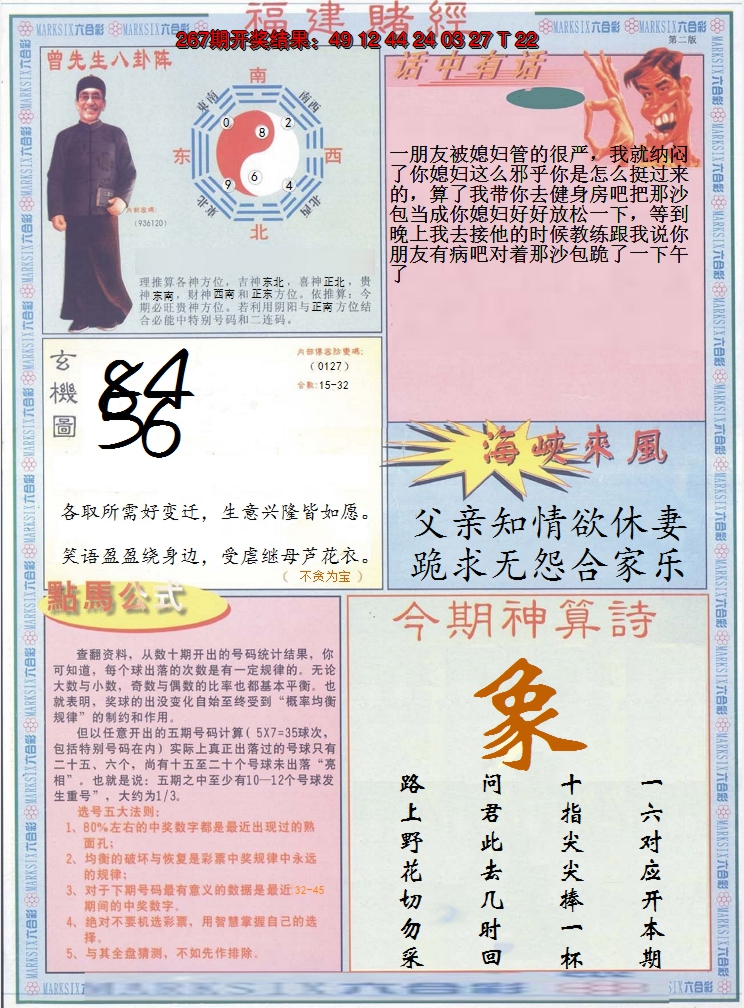 福建賭經
267期开奖结果：49 12 44 24 03 27 T 22
第二版
MARKSIX六合彩
曾先生八卦阵
南
东南
南西
东
西
东北
北西
北
0
8
2
9
6
4
内部密碼:
(936120)
理推算各神方位，吉神东北，喜神正北，贵
神东南，财神西南和正东方位。依推算：今
期必旺贵神方位。若利用阴阳与正南方位结
合必能中特别号码和二连码。
话中有话
一朋友被媳妇管的很严，我就纳闷
了你媳妇这么邪乎你是怎么挺过来
的，算了我带你去健身房吧把那沙
包当成你媳妇好好放松一下，等到
晚上我去接他的时候教练跟我说你
朋友有病吧对着那沙包跪了一下午
了
玄機圖
84
36
(0127)
合数:15-32
各取所需好变迁，生意兴隆皆如愿。
笑语盈盈绕身边，受虐继母芦花衣。
（ 不贪为宝 ）
海峽來風
父亲知情欲休妻
跪求无怨合家乐
點馬公式
查翻资料，从数十期开出的号码统计结果，你
可知道，每个球出落的次数是有一定规律的。无论
大数与小数，奇数与偶数的比率也都基本平衡。也
就表明，奖球的出没变化自始至终受到“概率均衡
规律”的制约和作用。
但以任意开出的五期号码计算( 5X7=35球次，
包括特别号码在内) 实际上真正出落过的号球只有
二十五、六个，尚有十五至二十个号球未出落“亮
相”。也就是说：五期之中至少有10—12个号球发
生重号”，大约为1/3。
选号五大法则：
1、80%左右的中奖数字都是最近出现过的熟
面孔；
2、均衡的破坏与恢复是彩票中奖规律中永远
的规律；
3、对于下期号码最有意义的数据是最近32-45
期间的中奖数字。
4、绝对不要机选彩票，用智慧掌握自己的选
择。
5、与其全盘猜测，不如先作排除。
今期神算詩
象
一六对应开本期
十指尖尖捧一杯
问君此去几时回
路上野花切勿采